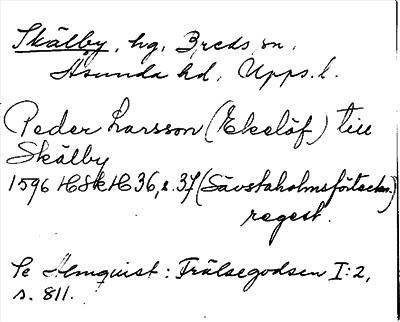 Skälby, hg, Breds sn.
Åsunda hd, Upps. l.
Peder Larsson (Ekelöf) till
Skälby
1596 HSkH 36, s. 37 (Sävstaholmsförteckn.)
regest.
Se Almquist: Frälsegodsen I:2,
s. 811.